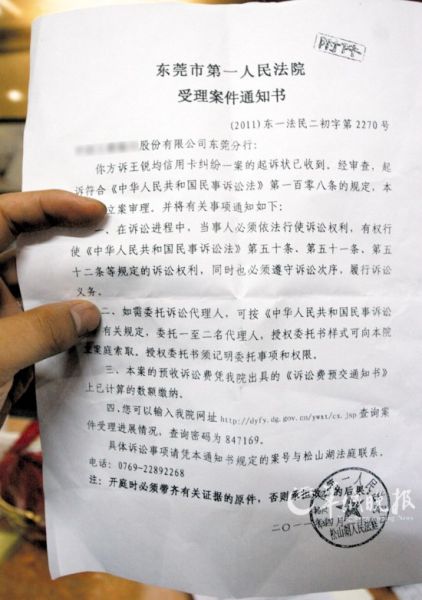 附件
东莞市第一人民法院
受理案件通知书
(2011)东一法民二初字第2270号
股份有限公司东莞分行:
你方诉王锐均信用卡纠纷一案的起诉状已收到。经审查,起
诉符合《中华人民共和国民事诉讼法》第一百零八条的规定,本
立案审理。并将有关事项通知如下:
一、在诉讼进程中,当事人必须依法行使诉讼权利,有权行
使《中华人民共和国民事诉讼法》第五十条、第五十一条、第五
十二条等规定的诉讼权利,同时也必须遵守诉讼次序,履行诉讼
义务。
二、如需委托诉讼代理人,可按《中华人民共和国民事诉讼
有关规定,委托一至二名代理人,授权委托书样式可向本院
立案庭索取。授权委托书须记明委托事项和权限。
三、本案的预收诉讼费凭我院出具的《诉讼费预交通知书》
上已计算的数额缴纳。
四、您可以输入我院网址http://dyfy.dg.gov.cn/ywxt/cx.jsp查询案
件受理进展情况,查询密码为847169。
具体诉讼事项请凭本通知书规定的案号与松山湖法庭联系。
电话:0769-22892268
注:开庭时必须带齐有关证据的原件,否则承担败诉的后果
二〇一一
松山湖人民法庭
羊城晚报